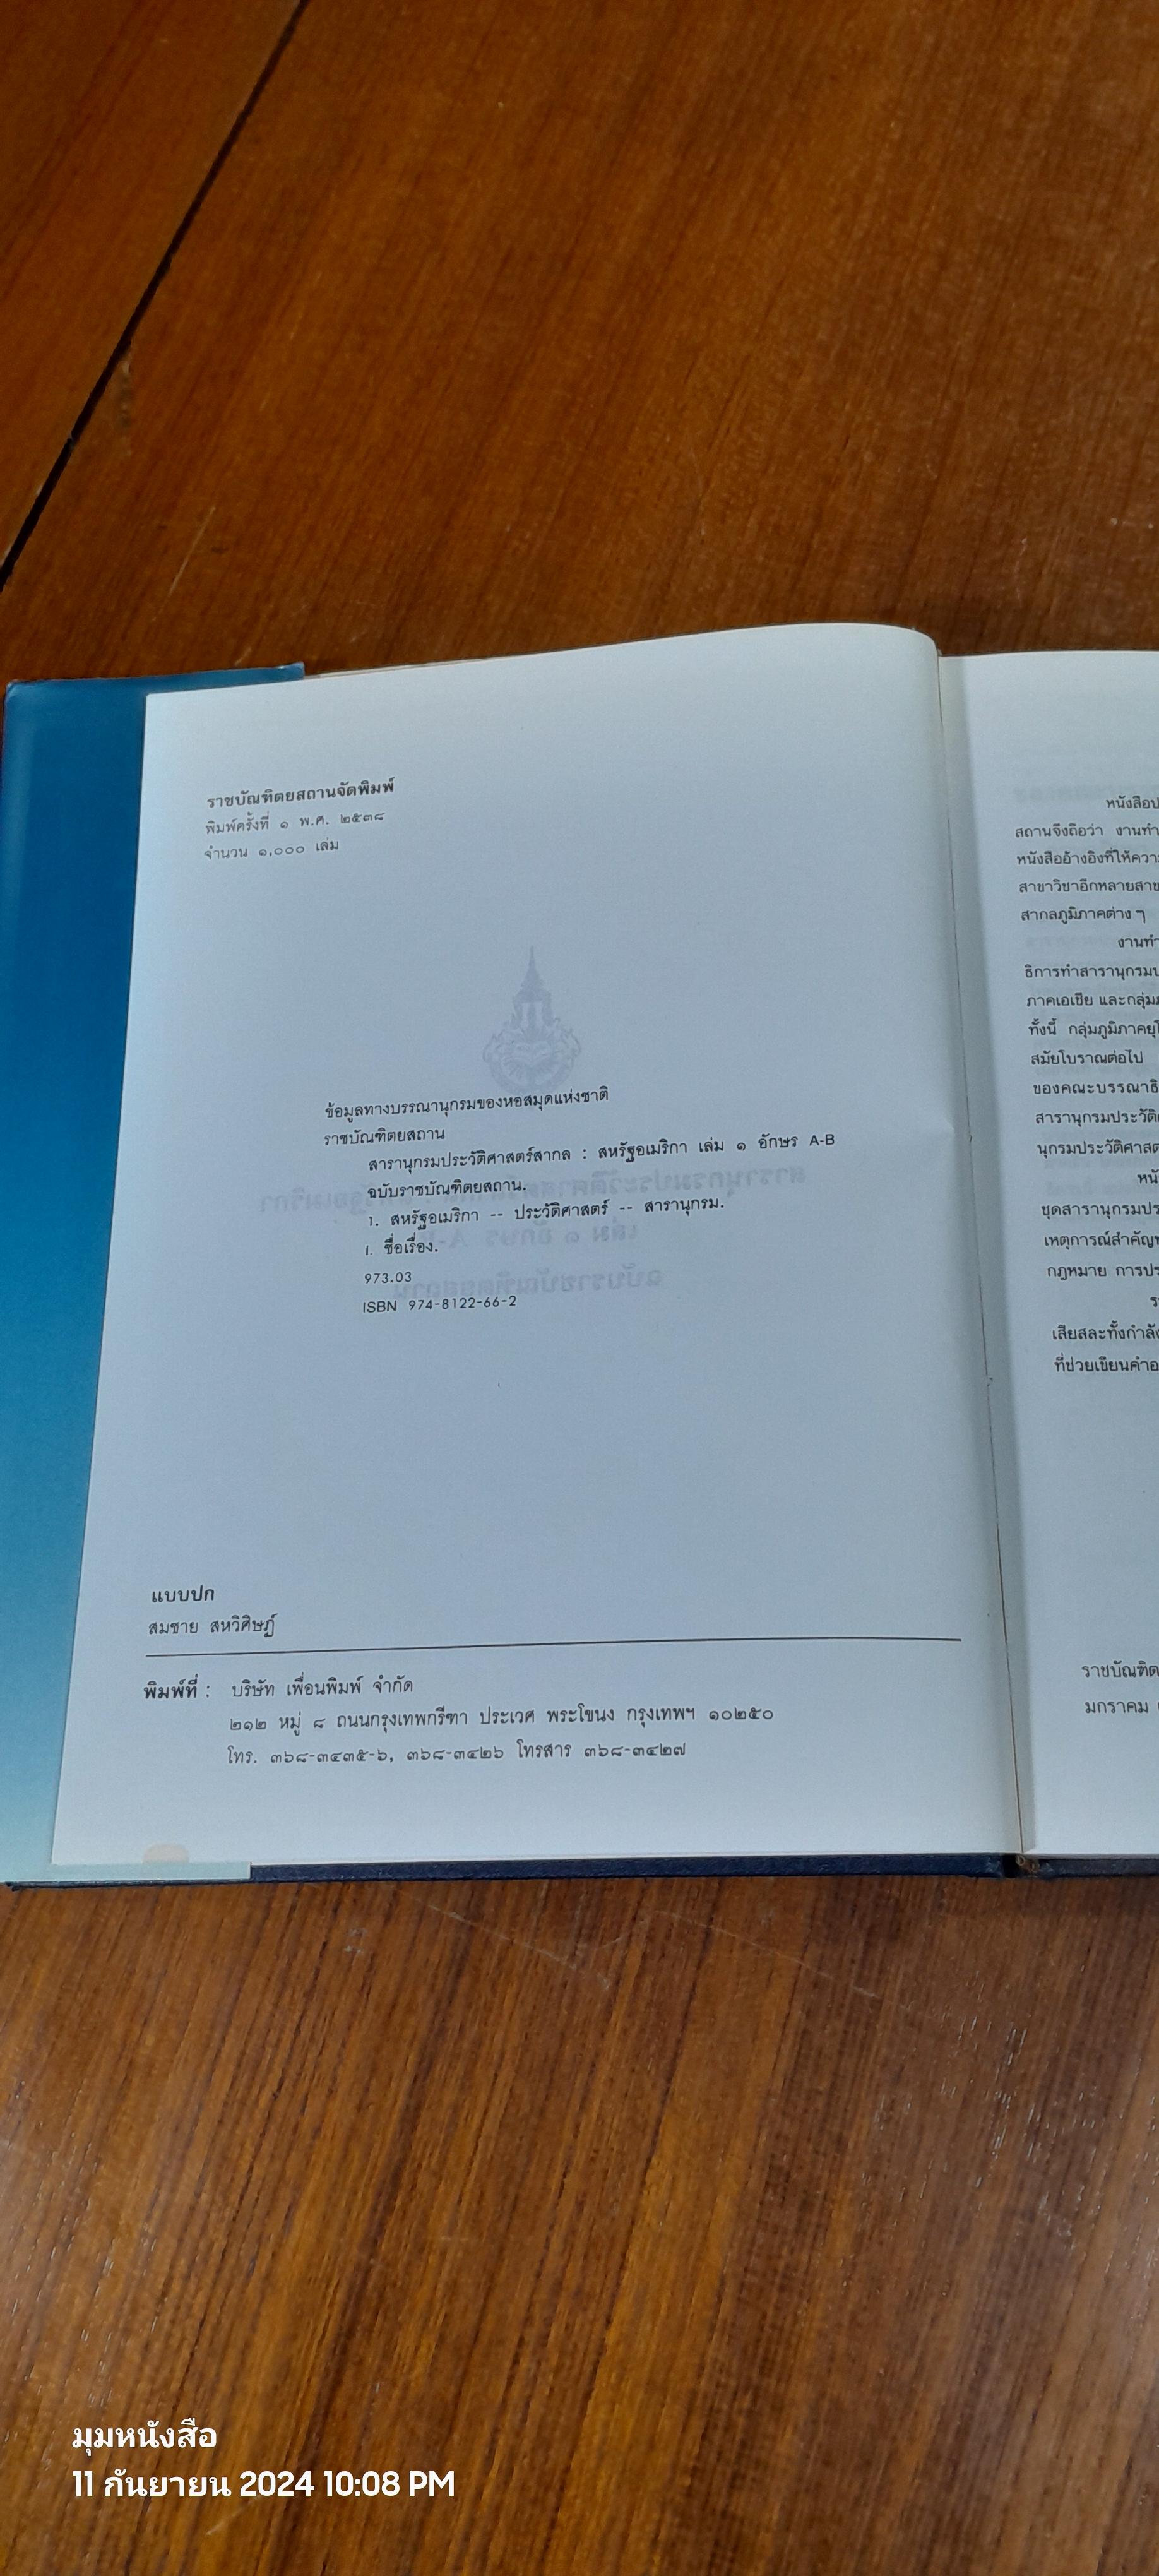 ราชบัณฑิตยสถานจัดพิมพ์
พิมพ์ครั้งที่ ๑ พ.ศ. ๒๕๓๘
จำนวน ๑,๐๐๐ เล่ม
ข้อมูลทางบรรณานุกรมของหอสมุดแห่งชาติ
ราชบัณฑิตยสถาน
สารานุกรมประวัติศาสตร์สากล : สหรัฐอเมริกา เล่ม ๑ อักษร A-B
ฉบับราชบัณฑิตยสถาน.
1. สหรัฐอเมริกา -- ประวัติศาสตร์ -- สารานุกรม.
I. ชื่อเรื่อง.
973.03
ISBN 974-8122-66-2
แบบปก
สมชาย สหวิศิษฏ์
พิมพ์ที่ : บริษัท เพื่อนพิมพ์ จำกัด
๒๑๒ หมู่ ๘ ถนนกรุงเทพกรีฑา ประเวศ พระโขนง กรุงเทพฯ ๑๐๒๕๐
โทร. ๓๖๘-๓๔๓๕-๖, ๓๖๘-๓๔๒๖ โทรสาร ๓๖๘-๓๔๒๗
หนังสือป
สถานจึงถือว่า งานทำ
หนังสืออ้างอิงที่ให้ควา
สาขาวิชาอีกหลายสาข
สากลภูมิภาคต่าง ๆ
งานทำ
ธิการทำสารานุกรมป
ภาคเอเชีย และกลุ่ม
ทั้งนี้ กลุ่มภูมิภาคยุ
สมัยโบราณต่อไป
ของคณะบรรณาธิ
สารานุกรมประวัติ
นุกรมประวัติศาสต
หนั
ชุดสารานุกรมประ
เหตุการณ์สำคัญ
กฎหมาย การปร
ร
เสียสละทั้งกำลัง
ที่ช่วยเขียนคำอ
ราชบัณฑิต
มกราคม
มุมหนังสือ
11 กันยายน 2024 10:08 PM